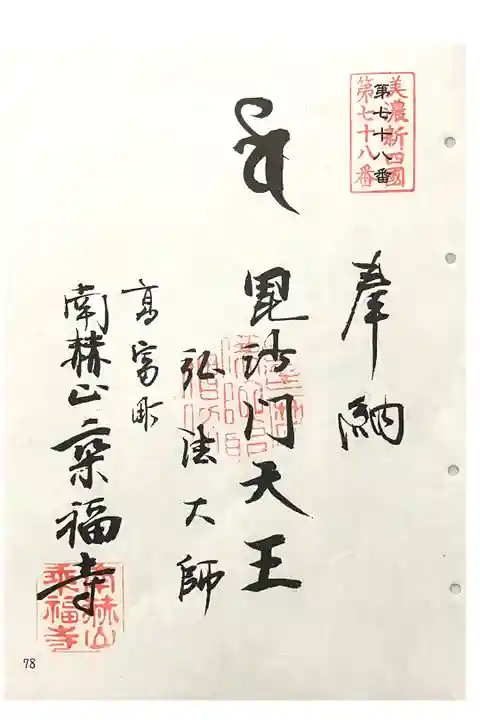 美濃新四國
第七十八番
第七十八番
奉納
毘沙門天王
弘法大師
高富町
乗福寺
乗福寺
78